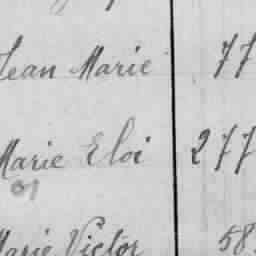 Jean Marie 77
Marie Eloi 277
Marie Victor 58